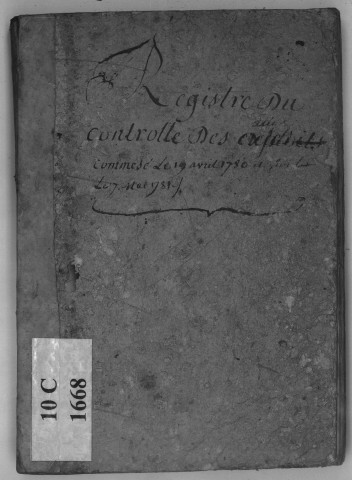 Registre Du
Controlle Des actes
Commencé Le 19 avril 1750
Le 7 mai 1751
10 C
1668